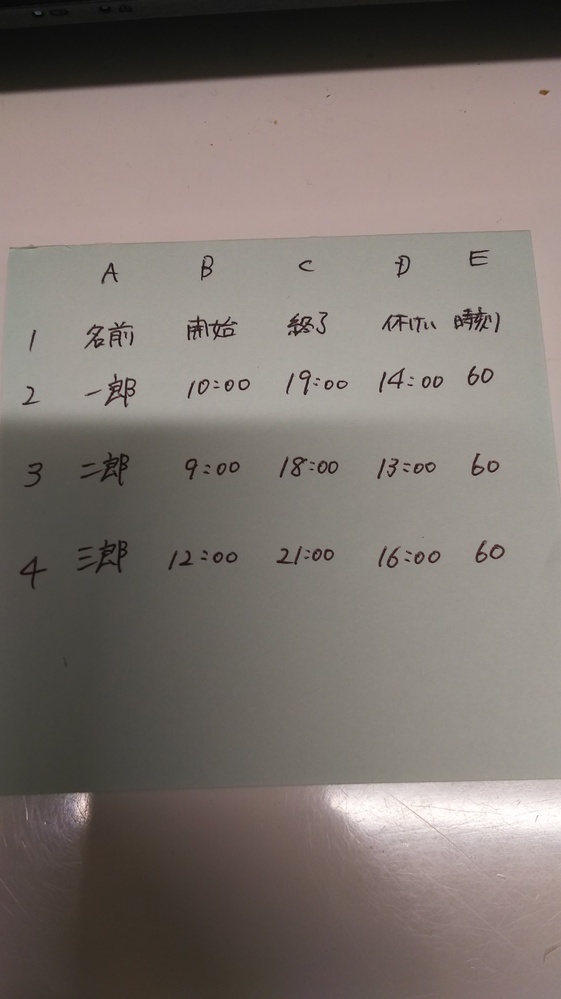 A B C D E
1 名前 開始 終了 休けい 時刻
2 一郎 10:00 19:00 14:00 60
3 二郎 9:00 18:00 13:00 60
4 三郎 12:00 21:00 16:00 60